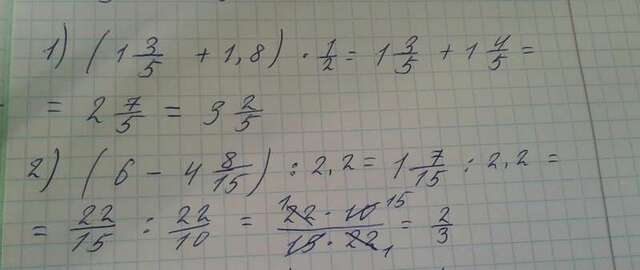 1) (1 3/5 + 1,8) · 1/2 = 1 3/5 + 1 4/5 =
= 2 7/5 = 3 2/5
2) (6 - 4 8/15) : 2,2 = 1 7/15 : 2,2 =
= 22/15 : 22/10 = 1 22 · 10 15 / 15 · 22 1 = 2/3